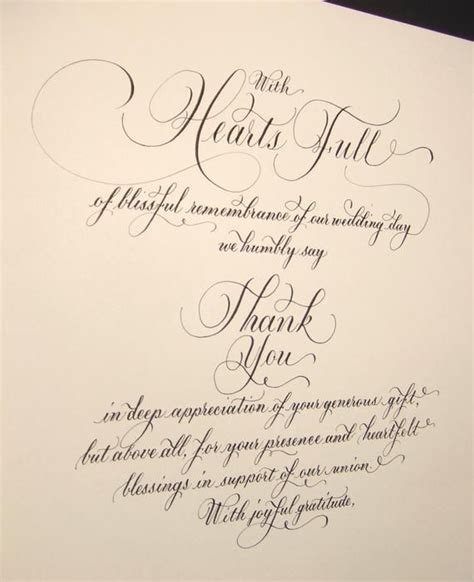 With
Hearts Full
of blissful remembrance of our wedding day
we humbly say
Thank
You
in deep appreciation of your generous gift,
but above all, for your presence and heartfelt
blessings in support of our union.
With joyful gratitude,